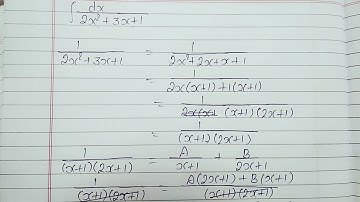 ∫ dx / 2x²+3x+1
1 / 2x²+3x+1 = 1 / 2x²+2x+x+1
= 1 / 2x(x+1)+1(x+1)
= 1 / (x+1)(2x+1)
= 1 / (x+1)(2x+1)
1 / (x+1)(2x+1) = A / x+1 + B / 2x+1
1 / (x+1)(2x+1) = A(2x+1)+B(x+1) / (x+1)(2x+1)